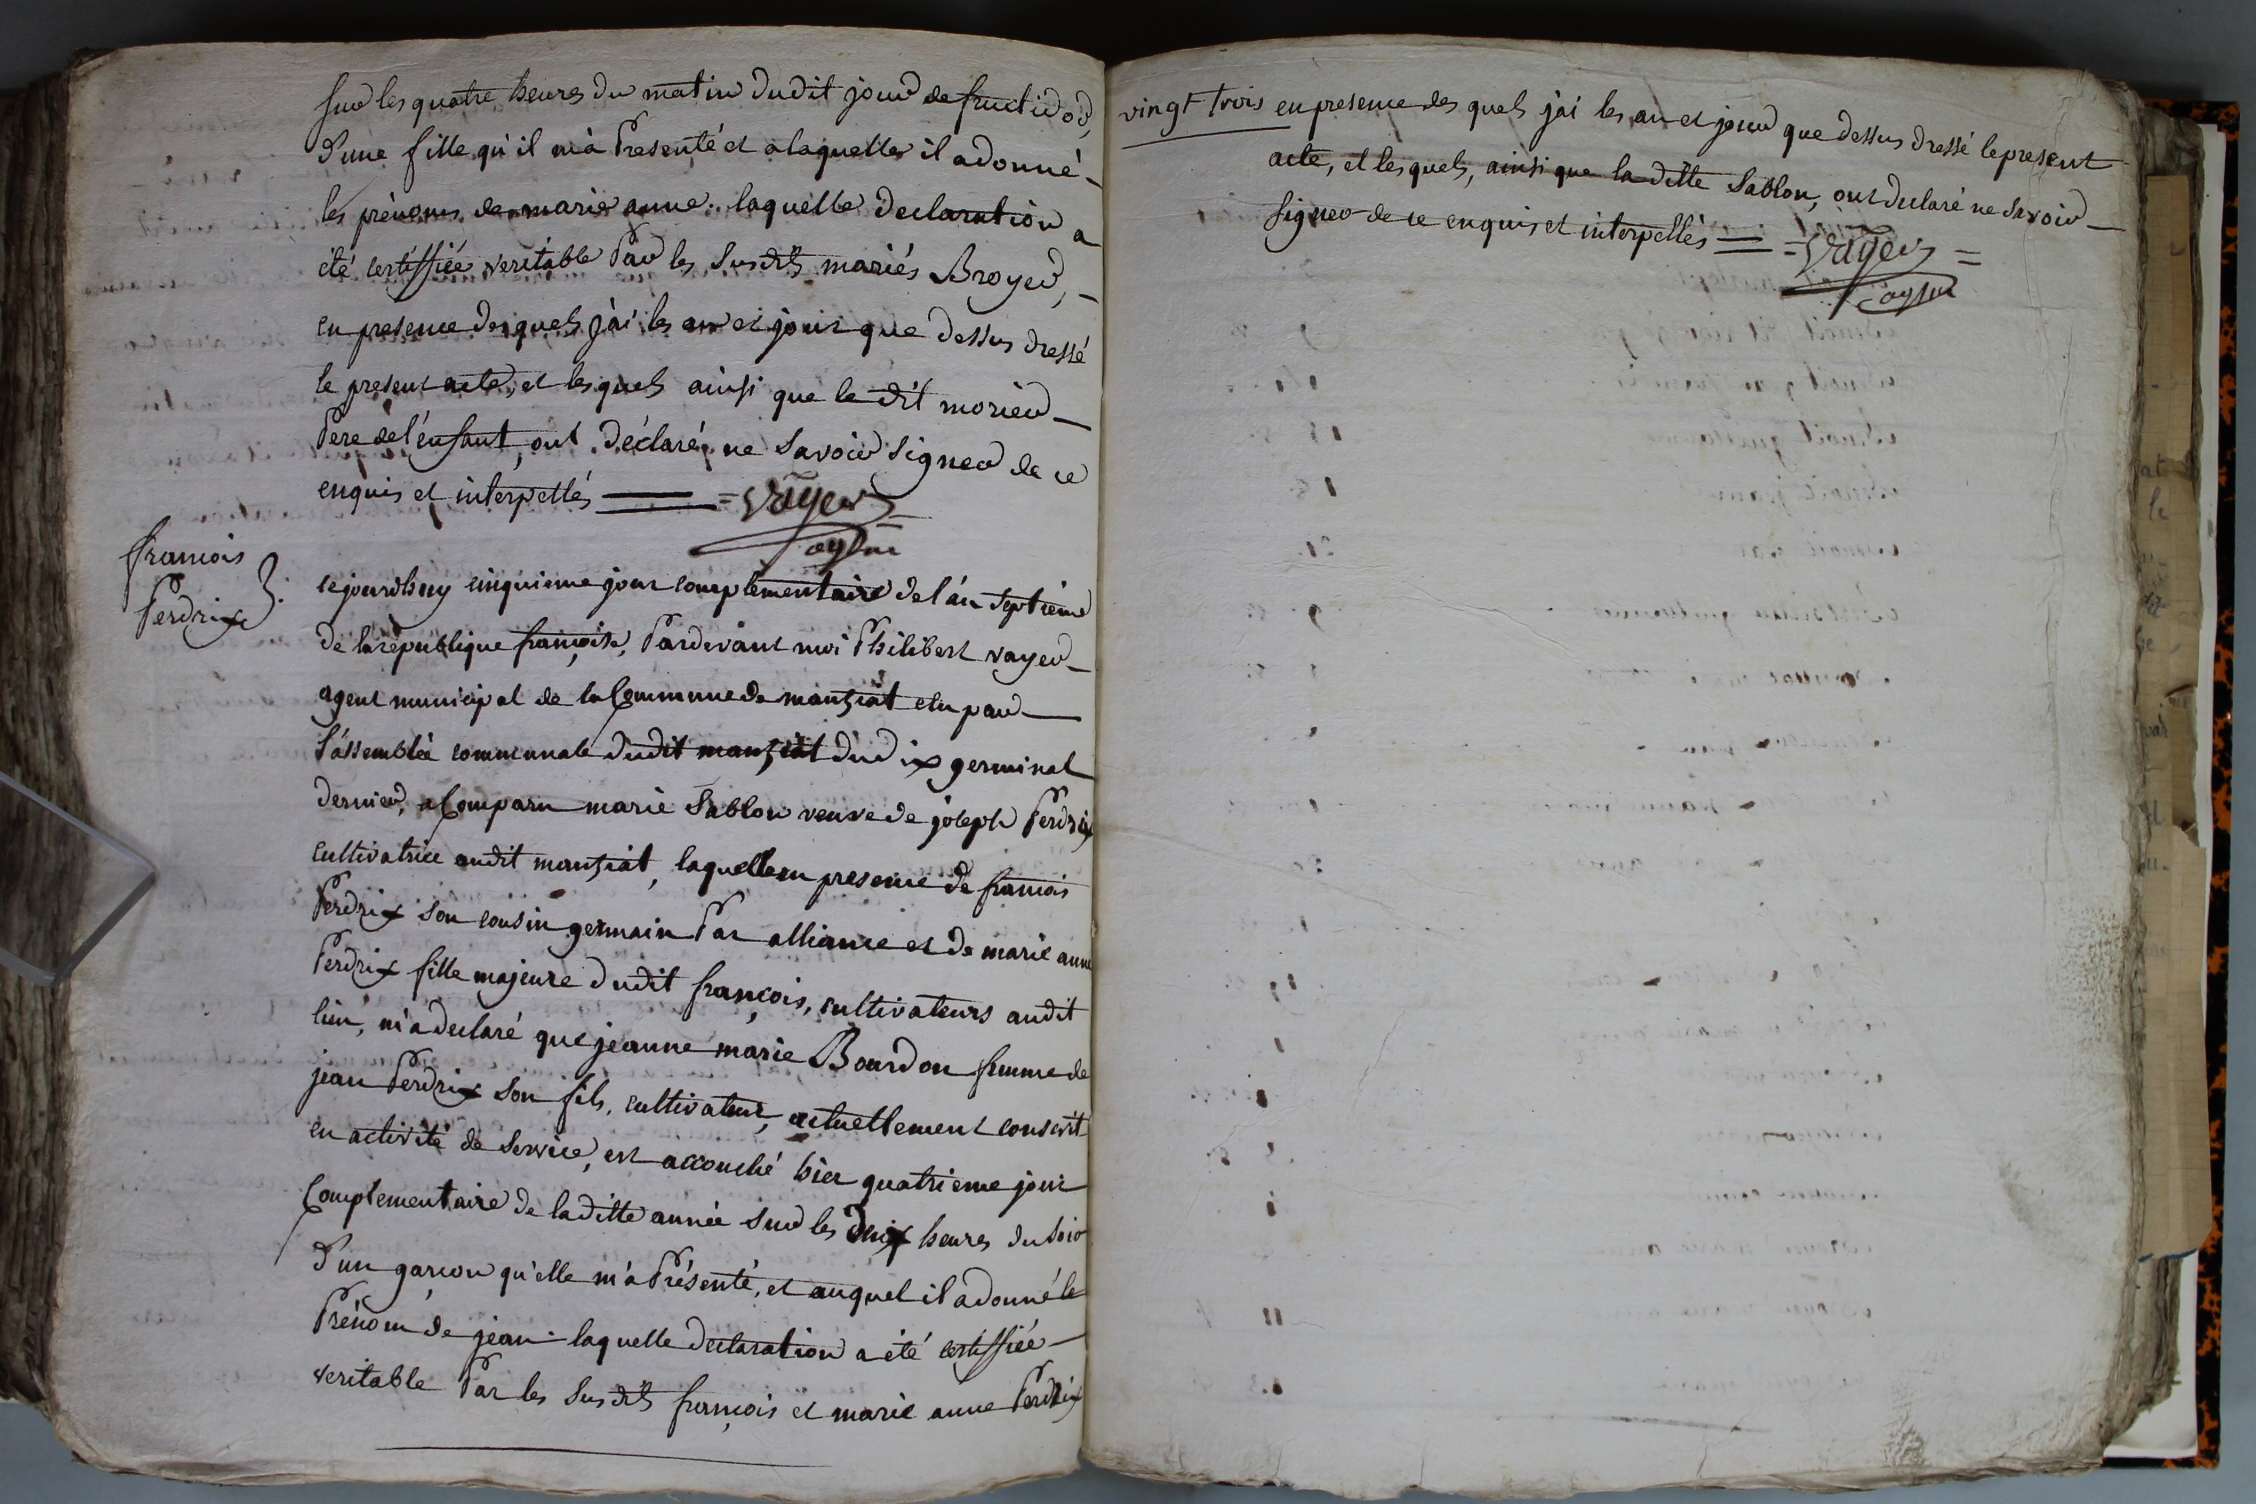 sur les quatre heures du matin dudit jour de fructidor,
d'une fille qu'il m'a Presenté et a laquelle il a donné
les prénoms de marie anne. laquelle declaration a
été certiffiée veritable Par les susdits mariés Broyer,
en presence desquels j'ai les an et jour que dessus dressé
le present acte, et lesquels ainsi que le dit morier
Pere de l'énfant, ont déclaré ne savoir signer de ce
enquis et interpellés = vayer =
agent
francois
Perdrix
cejourdhuy cinquieme jour complémentaire de l'án septiéme
de la république françoise, Pardevant moi Philibert vayer
agent municipal de la Commune de manziat elu par
l'assemblée communale dudit manziat du dix germinal
dernier, a Comparu marie Sablon veuve de joseph Perdrix
cultivatrice audit manziat, laquelle en presence de francois
Perdrix son cousin germain Par alliance et de marie anne
Perdrix fille majeure dudit françois, cultivateurs audit
lieu, m'a declaré que jeanne marie Bourdon femme de
jean Perdrix son fils, cultivateur, actuellement conscrit
en activité de service, est accouché hier quatrieme jour
Complementaire de la ditte année sur les heures du soir
d'un garcon qu'elle m'a Présenté, et auquel il a donné le
Prénom de jean. laquelle declaration a été certiffiée
veritable Par les susdits françois et marie anne Perdrix
vingt trois en presence des quels j'ai les an et jour que dessus dressé le present
acte, et lesquels, ainsi que la ditte Sablon, ont declaré ne savoir
signer de ce enquis et interpellés = vayer =
agent